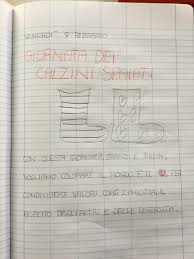 VENERDÌ 9 FEBBRAIO
GIORNATA DEI
CALZINI SPAIATI
CON QUESTA GIORNATA, GRANDI E PICCINI,
VOGLIAMO COLORARE IL MONDO E IL ❤ PER
CONDIVIDERE VALORI COME L'AMICIZIA, IL
RISPETTO DEGLI ALTRI E DELLE DIVERSITÀ.